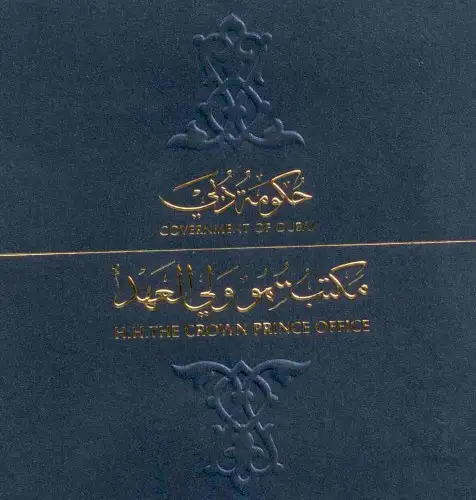 حكومة دبي
GOVERNMENT OF DUBAI
مكتب سمو ولي العهد
H.H.THE CROWN PRINCE OFFICE